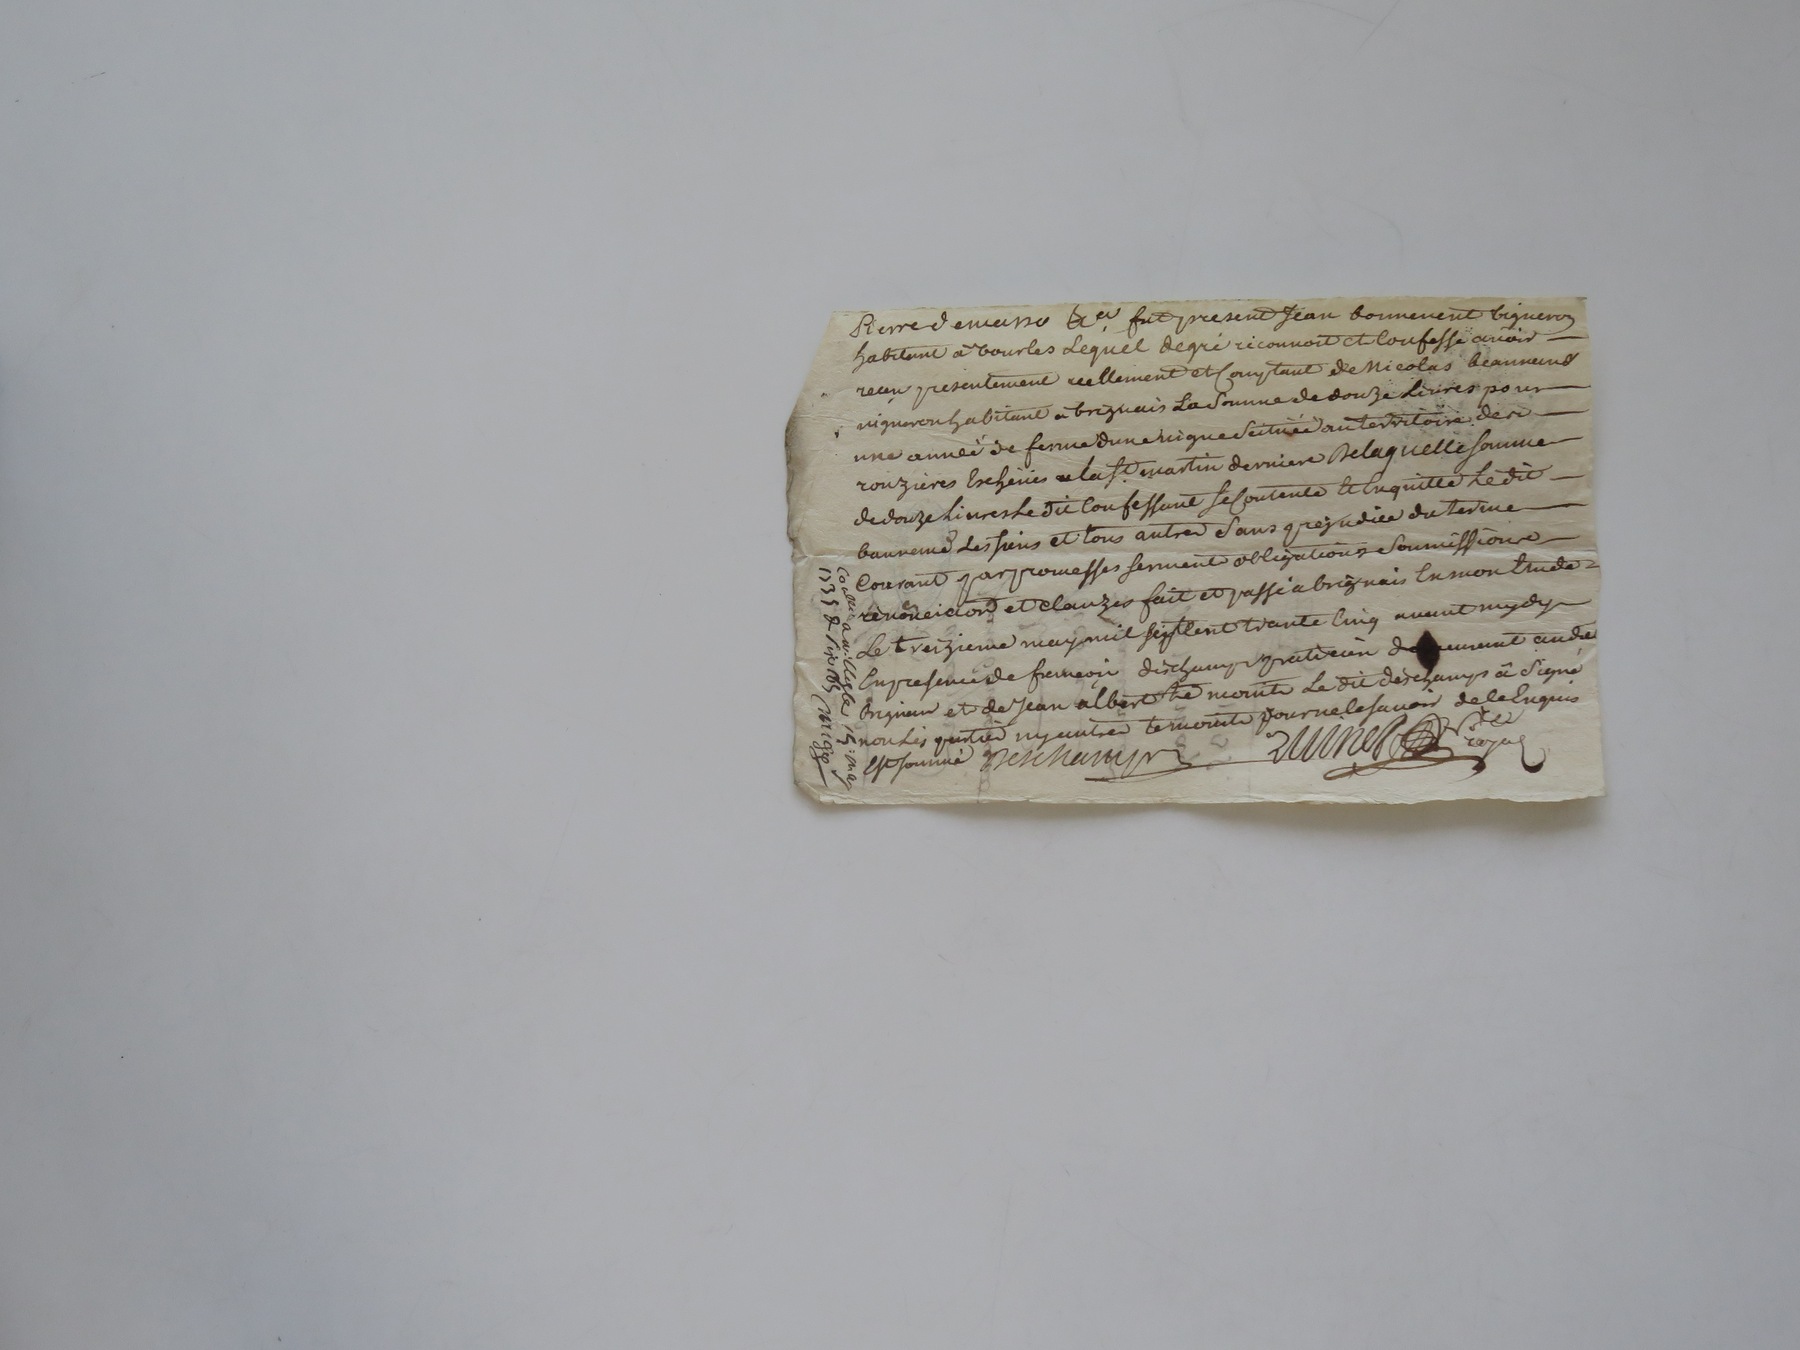 Pierre demasso &a fut present Jean bonnement vigneron
habitant à vourles Lequel degré reconnoit et Confesse avoir
receu presentement reellement et Comptant de Nicolas beaunemd
vigneron habitant a brignais La Somme de douze Livres pour
une année de ferme dune vigne Scituée au territoire des
rouzieres Escheües a la St. martin derniere De laquelle somme
de douze Livres Le dit Confessant se Contente Et Enquitte Le dit
baunemd Les siens et tous autres Sans prejudice du terme
Courant par promesses serment obligations Soumissions
renonciaõn et clauzes fait et passé a brignais En mon Etude
Le treizieme may mil sept Cent trante Cinq avant mydy
En presence de francois deschamps praticien demeurant audit
brignais et de Jean albert Le moints Le dit deschamps à Signé
non Les parties ny autres temoints pour ne le savoir de le Enquis
Est sommé Deschamps royal
1735